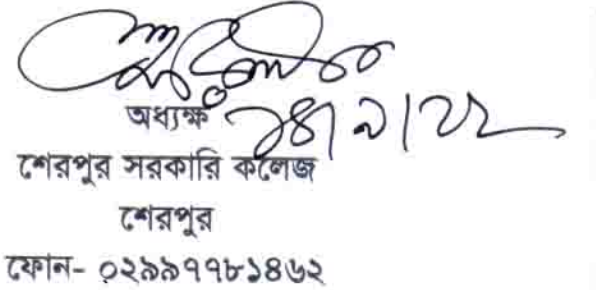 অধ্যক্ষ
১৪/৯/২২
শেরপুর সরকারি কলেজ
শেরপুর
ফোন- ০২৯৯৭৭৮১৪৬২